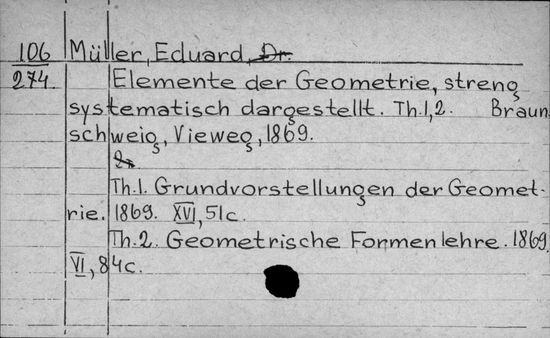 106 Müller, Eduard, Dr.
274 Elemente der Geometrie, streng
systematisch dargestellt. Th.1,2. Braun
schweig, Vieweg, 1869.
Th.1. Grundvorstellungen der Geomet-
rie. 1869. XVI, 51c.
Th.2. Geometrische Formenlehre. 1869
VI, 84c.